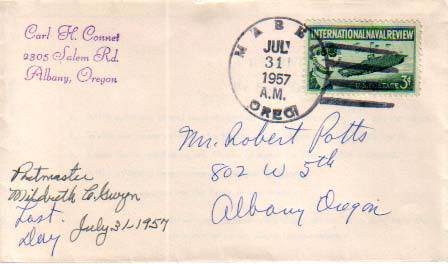 Carl H. Connet
2805 Salem Rd.
Albany, Oregon
MABEL
JUL
31
1957
A.M.
OREG
INTERNATIONAL NAVAL REVIEW
U.S. POSTAGE 3¢
Mr. Robert Potts
802 W 5th
Albany Oregon
Postmaster
Mildreth C. Gwyn
Last
Day July-31-1957